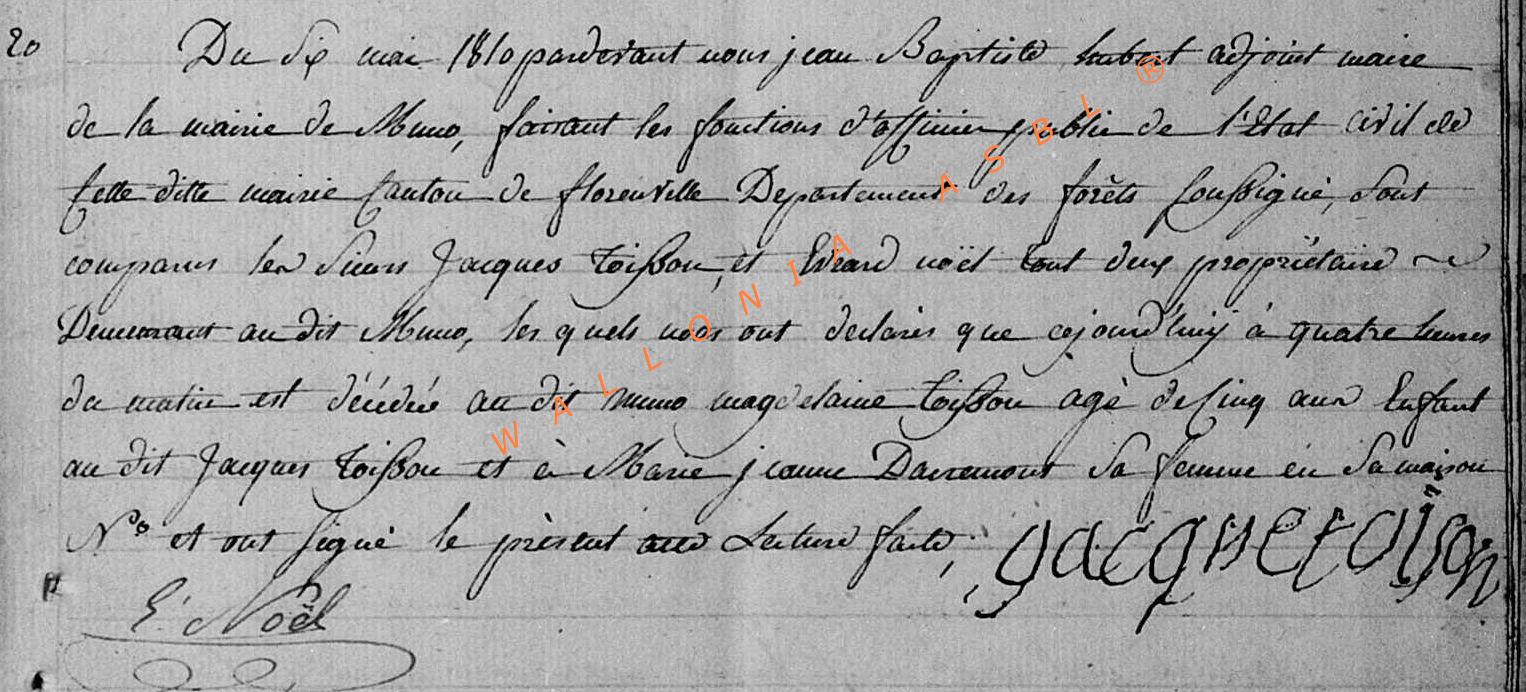 20
Du six mai 1810 pardevant nous jean Baptiste hubert adjoint maire
de la mairie de Muno, faisant les fonctions d'officier public de l'Etat civil de
Cette ditte mairie Canton de florenville Departement des forêts soussigné, Sont
comparus les Sieurs Jacques Toisson, et Evrard noël tout deux propriétaire
Demeurant au dit Muno, les quels nous ont declarés que cejourd'huy à quatre heures
du matin est décédé au dit muno magdelaine Toisson agè de Cinq ans Enfant
au dit Jacques Toisson et à Marie jeanne Darremont Sa femme en Sa maison
N.° et ont signé le présent acte Lecture faite,
jacque toison
E. Noël
WALLONIA ASBL ®